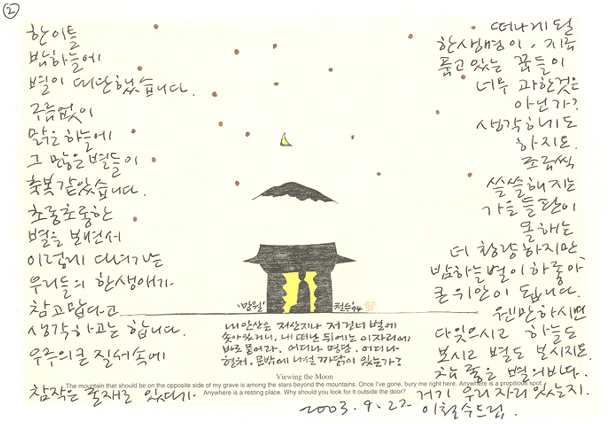 ②
한이틀
밤하늘에
별이 대단했습니다.
구름없이
맑은 하늘에
그 많은 별들이
축복 같았습니다.
초롱초롱한
별을 보면서
이렇게 다녀가는
우리들의 한생애가
참 고맙다고
생각하고는 합니다.
우주의 큰 질서속에
참 작은 존재로 있다가
떠나게 될
한생명이, 지금
품고 있는 꿈들이
너무 과한것은
아닌가?
생각하게도
하지요.
조금씩
쓸쓸해지는
가을 들판이
올해는
더 황량하지만,
밤하늘 별이 하 좋아,
큰 위안이 됩니다.
웬만하시면
다 잊으시고 하늘도
보시고 별도 보시지요.
참 좋은 별의 바다.
거기 우리 자리 있는지.
2003. 9. 22 이철수 드림.
'망월' 철수 '94
내 안산은 저 산 지나 저 건너 별에
솟아 있거니, 내 떠난 뒤에는 이 자리에
바로 묻어라. 어디나 명당. 어디나
쉴 처. 문밖에 나설 까닭이 있는가?
Viewing the Moon
The mountain that should be on the opposite side of my grave is among the stars beyond the mountains. Once I've gone, bury me right here. Anywhere is a propitious spot.
Anywhere is a resting place. Why should you look for it outside the door?